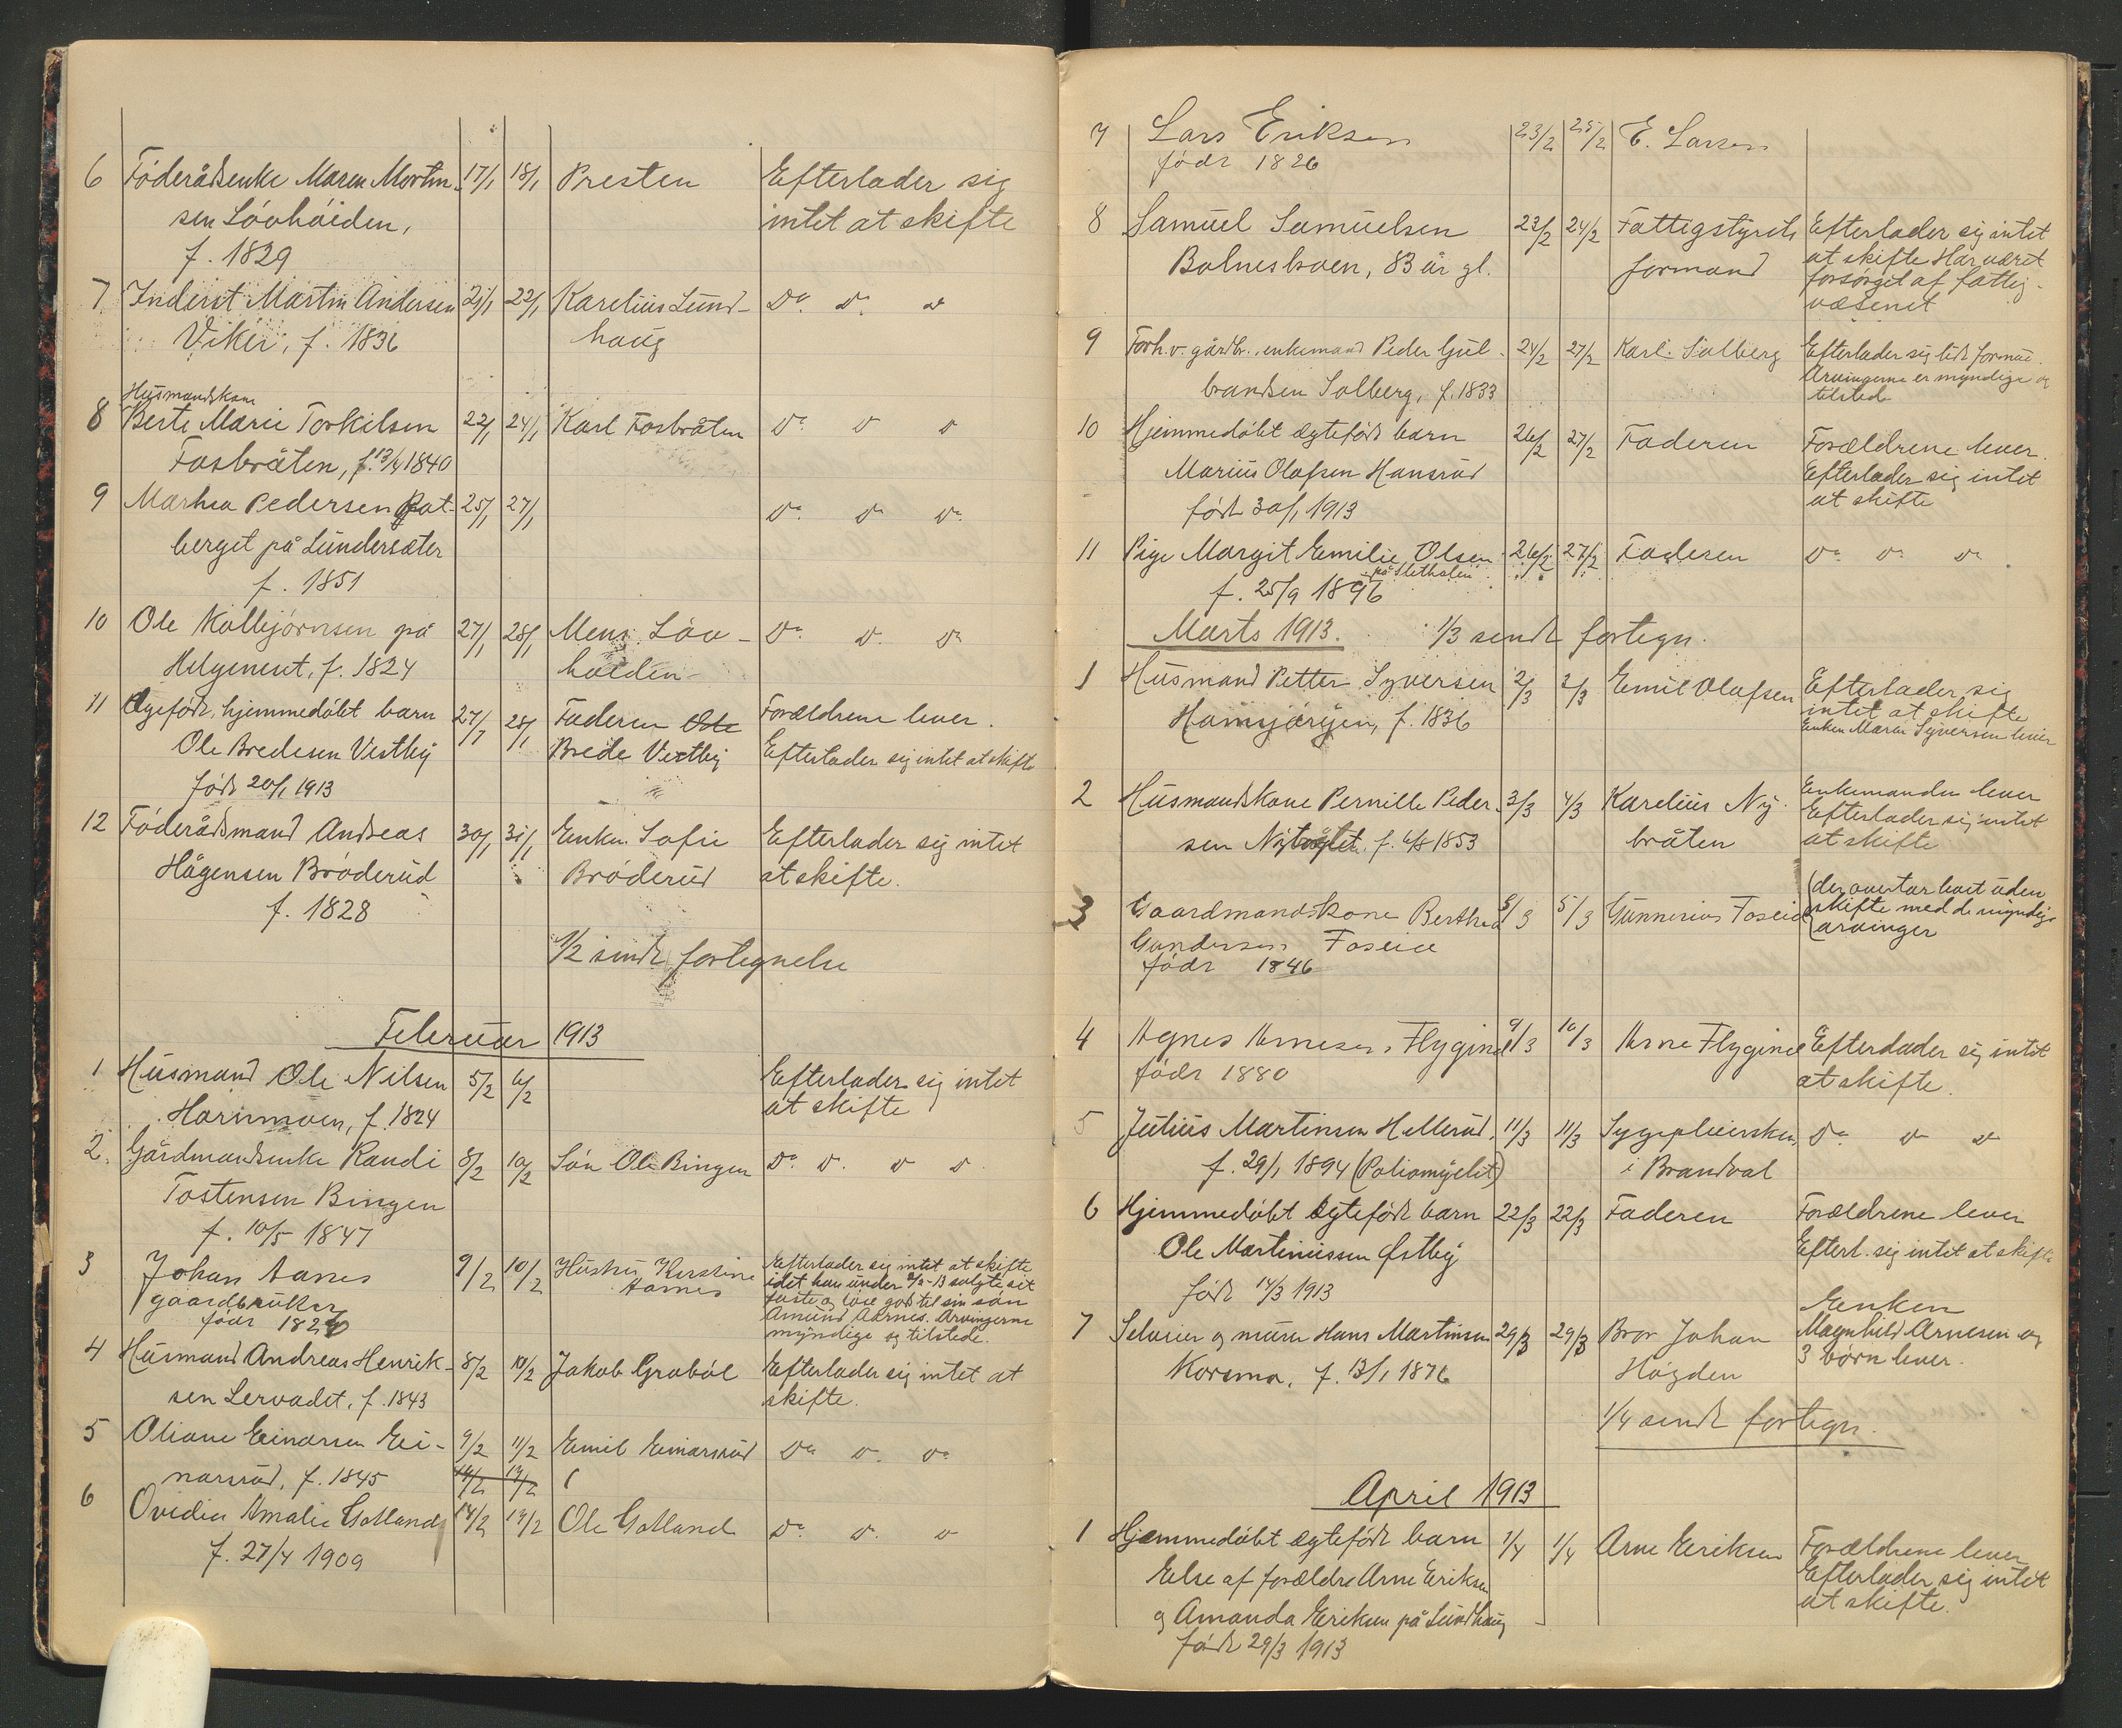 6 Föderådsenke Maren Mortin- 17/1 18/1 Presten Efterlader sig
sen Lövhöiden, intet at skifte
f. 1829
7. Inderst Martin Andersen 21/1 22/1 Karelius Lund- Do. do. do
Viker, f. 1836 haug
Husmandskone
8 Berte Marie Torkilsen 22/1 24/1 Karl Fosbråten Do. do do
Fosbråten, f. 13/4 1840
9 Marthea Pedersen 25/1 27/1 Do. do do.
berget på Lundersæter
f. 1851
10 Ole Kolbjörnsen på 27/1 28/1 Mens Löv- Do. do. do
Helgeneset, f. 1824 holden
11 Ægtefödt, hjemmedöbt barn 27/1 28/1 Faderen Ole Forældrene lever.
Ole Bredesen Vestby Brede Vestby Efterlader sig intet at skifte
födt 20/1 1913
12 Föderådsmand Andreas 30/1 31/1 Enken Sofie Efterlader sig intet
Hågensen Bröderud Bröderud at skifte.
f. 1828
1/2 sendt fortegnelse
Februar 1913
1 Husmand Ole Nilsen 5/2 6/2 Efterlader sig intet
Harinmoen, f. 1824 at skifte
2. Gårdmandsenke Randi 8/2 10/2 Sön Ole Bingen Do. do. do do.
Tostensen Bingen
f. 10/5 1847
3 Johan Aarnes 9/2 10/2 Hustru Kirstine Efterlader sig intet at skifte
gaardbruker Aarnes idet han under 8/2-13 solgte sit
födt 1820 faste og löse gods til sin sön
Amund Aarnes. Arvingerne
myndige og tilstede.
4 Husmand Andreas Henrik- 8/2 10/2 Jakob Graböl Efterlader sig intet at
sen Lervadet, f. 1843 skifte.
5 Oliane Einarsen Ei- 9/2 11/2 Emil Einarsrud Do. do. do.
narsrud, f. 1845 14/2 17/2
6 Ovidia Amalie Gotland 14/2 17/2 Ole Gotland Do. do. do
f. 27/4 1909
7 Lars Eriksen 23/2 25/2 E. Larsen
födt 1826
8 Samuel Samuelsen 23/2 24/2 Fattigstyrets Efterlader sig intet
Bolneshaen, 83 år gl. formand at skifte Har været
forsörget af fattig-
væsenet
9 Forh.v. gårdbr., enkemand Peder Gul- 24/2 27/2 Karl Solberg Efterlader sig lidt formue.
brandsen Solberg, f. 1833 Arvingerne er myndige og
tilstede
10 Hjemmedöbt ægtefödt barn 26/2 27/2 Faderen Forældrene lever.
Marius Olafsen Hansrud Efterlader sig intet
födt 30/1 1913 at skifte
11 Pige Margit Emilie Olsen 26/2 27/2 Faderen Do. do. do.
på Sletholen
f. 25/9 1896
Marts 1913. 1/3 sendt fortegn.
1 Husmand Petter Syversen 2/3 2/3 Emil Olafsen Efterlader sig
Hansjörgen, f. 1836 intet at skifte
Enken Maren Syversen lever
2 Husmandskone Pernille Peder- 3/3 4/3 Karelius Ny- Enkemanden lever
sen f. 6/8 1853 bråten Efterlader sig intet
at skifte
3 Gaardmandskone Berthea 5/3 5/3 Gunnerius Foseide (der overtar boet uden
Gundersen Foseide skifte med de myndige
födt 1846 arvinger
4 Agnes Arnesen Flyginde 9/3 10/3 Arne Flyginde Efterlader sig intet
födt 1880 at skifte.
5 Julius Martinsen Hellerud, 11/3 11/3 Sygepleiersken Do do do
f. 29/1 1894 (Poliomyelit) i Brandval
6 Hjemmedöbt ægtefödt barn 22/3 22/3 Faderen Forældrene lever
Ole Martiniussen Østby Efterl. sig intet at skifte
födt 14/3 1913
7 Selveier og murer Hans Martinsen 29/3 29/3 Bror Johan Enken
Korsmo. f. 13/1 1876 Högden Magnhild Arnesen og
3 börn lever.
1/4 sendt fortegn.
April 1913
1 Hjemmedöbt ægtefödt barn 1/4 1/4 Arne Eriksen Forældrene lever
Else af forældre Arne Eriksen Efterlader sig intet
og Amanda Eriksen på Lundhaug at skifte.
födt 29/3 1913